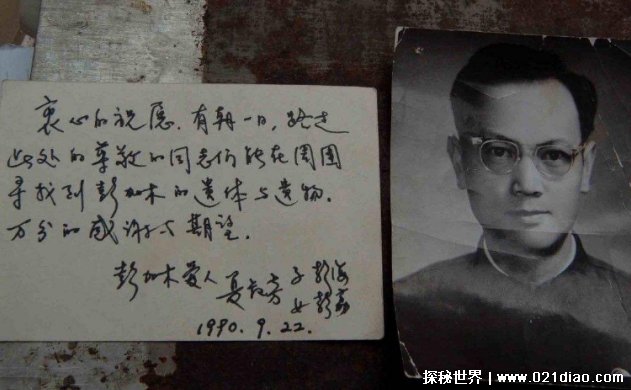 衷心的祝愿．有朝一日，路过
此处的尊敬的同志们能在周围
寻找到彭加木的遗体与遗物．
万分的感谢与期望．
彭加木爱人 夏叔芳 子 彭海
女 彭荔
1990.9.22.
探秘世界：www.021diao.com